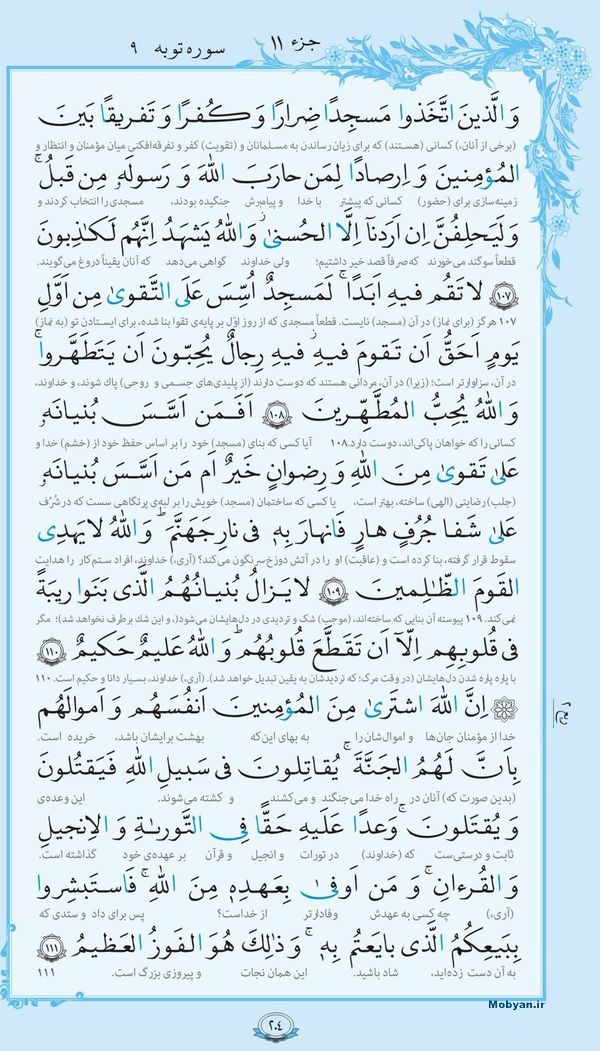 جزء ۱۱
سوره توبه ۹
وَ الَّذینَ اتَّخَذوا مَسجِدًا ضِرارًا وَ کُفرًا وَ تَفریقًا بَینَ
(برخی از آنان،) کسانی (هستند) که برای زیان رساندن به مسلمانان و (تقویت) کفر و تفرقه‌افکنی میان مؤمنان و انتظار و
المُؤمِنینَ وَ اِرصادًا لِمَن حارَبَ اللهَ وَ رَسولَهٗ مِن قَبلُ ۚ
زمینه‌سازی برای (حضور) کسانی که پیشتر با خدا و پیامبرش جنگیده بودند، مسجدی را انتخاب کردند و
وَ لَیَحلِفُنَّ اِن اَرَدنآ اِلَّا الحُسنیٰ ۖ وَ اللهُ یَشهَدُ اِنَّهُم لَکٰذِبونَ
قطعاً سوگند می‌خورند که صرفاً قصد خیر داشتیم؛ ولی خداوند گواهی می‌دهد که آنان یقیناً دروغ می‌گویند.
﴿۱۰۷﴾ لا تَقُم فیهِ اَبَدًا ۚ لَمَسجِدٌ اُسِّسَ عَلَی التَّقویٰ مِن اَوَّلِ
۱۰۷ هرگز (برای نماز) در آن (مسجد) نایست. قطعاً مسجدی که از روز اوّل بر پایه‌ی تقوا بنا شده، برای ایستادن تو (به نماز)
یَومٍ اَحَقُّ اَن تَقومَ فیهِ ۚ فیهِ رِجالٌ یُحِبّونَ اَن یَتَطَهَّروا ۚ
در آن، سزاوارتر است؛ (زیرا) در آن، مردانی هستند که دوست دارند (از پلیدی‌های جسمی و روحی) پاك شوند، و خداوند،
وَ اللهُ یُحِبُّ المُطَّهِّرینَ ﴿۱۰۸﴾ اَفَمَن اَسَّسَ بُنیانَهٗ
کسانی را که خواهان پاکی‌اند، دوست دارد. ۱۰۸ آیا کسی که بنای (مسجد) خود را بر اساس حفظ خود از (خشم) خدا و
عَلیٰ تَقویٰ مِنَ اللهِ وَ رِضوانٍ خَیرٌ اَم مَن اَسَّسَ بُنیانَهٗ
(جلب) رضایتی (الهی) ساخته، بهتر است، یا کسی که ساختمان (مسجد) خویش را بر لبه‌ی پرتگاهی سست که در شُرُف
عَلیٰ شَفا جُرُفٍ هارٍ فَانهارَ بِهٖ فی نارِ جَهَنَّمَ ۗ وَ اللهُ لا یَهدِی
سقوط قرار گرفته، بنا کرده است و (عاقبت) او را در آتش دوزخ سرنگون می‌کند؟ (آری،) خداوند، افراد ستم‌کار را هدایت
القَومَ الظّٰلِمینَ ﴿۱۰۹﴾ لا یَزالُ بُنیانُهُمُ الَّذی بَنَوا ریبَةً
نمی‌کند. ۱۰۹ پیوسته آن بنایی که ساخته‌اند، (موجب) شک و تردیدی در دل‌هایشان می‌شود(، و این شك برطرف نخواهد شد)؛ مگر
فی قُلوبِهِم اِلّآ اَن تَقَطَّعَ قُلوبُهُم ۗ وَ اللهُ عَلیمٌ حَکیمٌ ﴿۱۱۰﴾
با پاره پاره شدن دل‌هایشان (در وقت مرگ؛ که تردیدشان به یقین تبدیل خواهد شد). (آری،) خداوند، بسیار دانا و حکیم است. ۱۱۰
اِنَّ اللهَ اشتَریٰ مِنَ المُؤمِنینَ اَنفُسَهُم وَ اَموالَهُم
خدا از مؤمنان جان‌ها و اموال‌شان را به بهای این‌که بهشت برایشان باشد، خریده است.
بِاَنَّ لَهُمُ الجَنَّةَ ۚ یُقاتِلونَ فی سَبیلِ اللهِ فَیَقتُلونَ
(بدین صورت که) آنان در راه خدا می‌جنگند و می‌کشند و کشته می‌شوند. این وعده‌ی
وَ یُقتَلونَ ۖ وَعدًا عَلَیهِ حَقًّا فِی التَّورىٰةِ وَ الاِنجیلِ
ثابت و درستی‌ست که (خداوند) در تورات و انجیل و قرآن بر عهده‌ی خود گذاشته است.
وَ القُرءانِ ۚ وَ مَن اَوفیٰ بِعَهدِهٖ مِنَ اللهِ ۚ فَاستَبشِروا
(آری،) چه کسی به عهدش وفادارتر از خداست؟ پس برای داد و ستدی که
بِبَیعِکُمُ الَّذی بایَعتُم بِهٖ ۚ وَ ذٰلِکَ هُوَ الفَوزُ العَظیمُ ﴿۱۱۱﴾
به آن دست زده‌اید، شاد باشید. این همان نجات و پیروزی بزرگ است. ۱۱۱
Mobyan.ir
۲۰۴